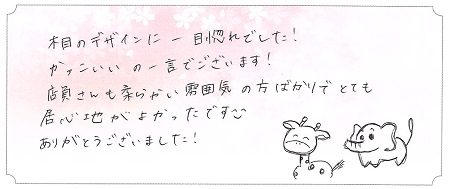 木目のデザインに一目惚れでした!
かっこいいの一言でございます!
店員さんも柔らかい雰囲気の方ばかりでとても
居心地がよかったです
ありがとうございました!